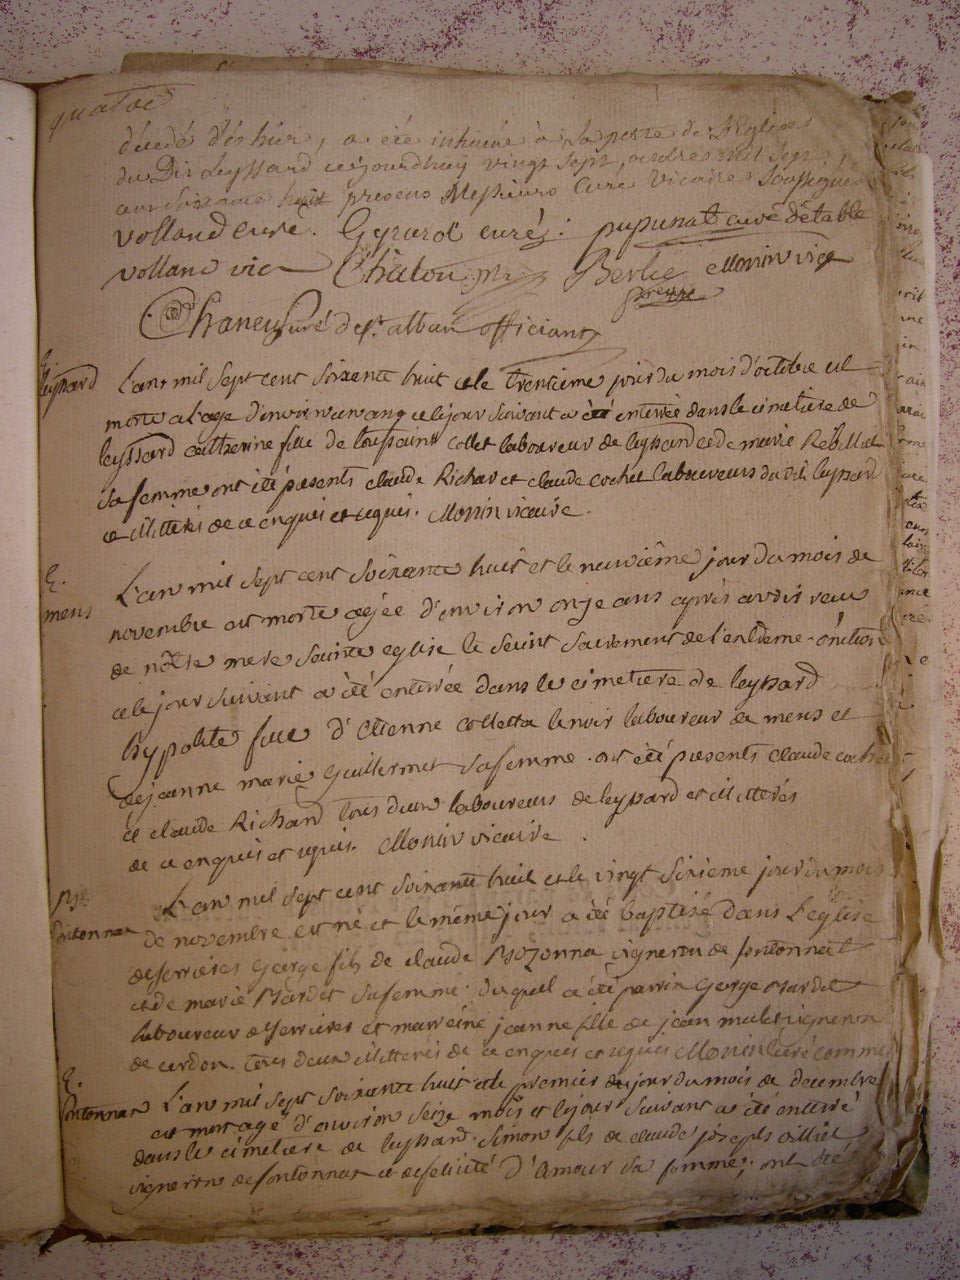 quatre
décédé d'éshier, a été inhumé à la porte de L'Eglise
du Dit Leyssard cejourdhuy vingt sept, octobre mil sept
cent soixante huit presens Messieurs Curé Vicaires Soussignés
Volland curé. Gyrard curé. pupunat curé détable
volland vic Chatou Berlie Monin vic
Chaney curé de st. alban officiant
E.
leyssard
L'an mil sept cent soixante huit et le trentième jour du mois d'octobre est
morte a l'age d'environ un an, et le jour suivant a été enterrée dans le cimetiere de
leyssard catherine fille de toussaint collet laboureur de leyssard et de marie Rebillat
sa femme ont été présents claude Richar et claude cochet laboureurs du dit leyssard
et illitérés de ce enquis et requis. Monin vicaire.
E.
mens
L'an mil sept cent soixante huit et le neuvième jour du mois de
novembre est morte agée d'environ onze ans après avoir reçu
de nôtre mere sainte eglise le saint sacrement de l'entrême-onction
et le jour suivant a été enterrée dans le cimetiere de leyssard
hypolite fille d'Etienne Collettalenoir laboureur de mens et
de jeanne marie Guillermet sa femme. ont été présents claude cochet
et claude Richard tous deux laboureurs de leyssard et illitérés
de ce enquis et requis. Monin vicaire.
fontonnat
L'an mil sept cent soixante huit et le vingt sixieme jour du mois
de novembre est né et le même jour a été baptisé dans L'eglise
de serrieres George fils de claude Bozonna vigneron de fontonnat
et de marie Bardet sa femme. duquel a été parrin George Bardet
laboureur de serrieres et marreine jeanne fille de jean mulet vigneron
de cerdon. tous deux illitérés de ce enquis et requis Monin curé commis
E.
fontonnat
L'an mil sept soixante huit et le premier jour du mois de decembre
est mort agé d'environ seize mois et le jour suivant a été enterré
dans le cimetiere de leyssard Simon fils de claude joseph villiet
vigneron de fontonnat et de felicité D'amour sa femme; ont été